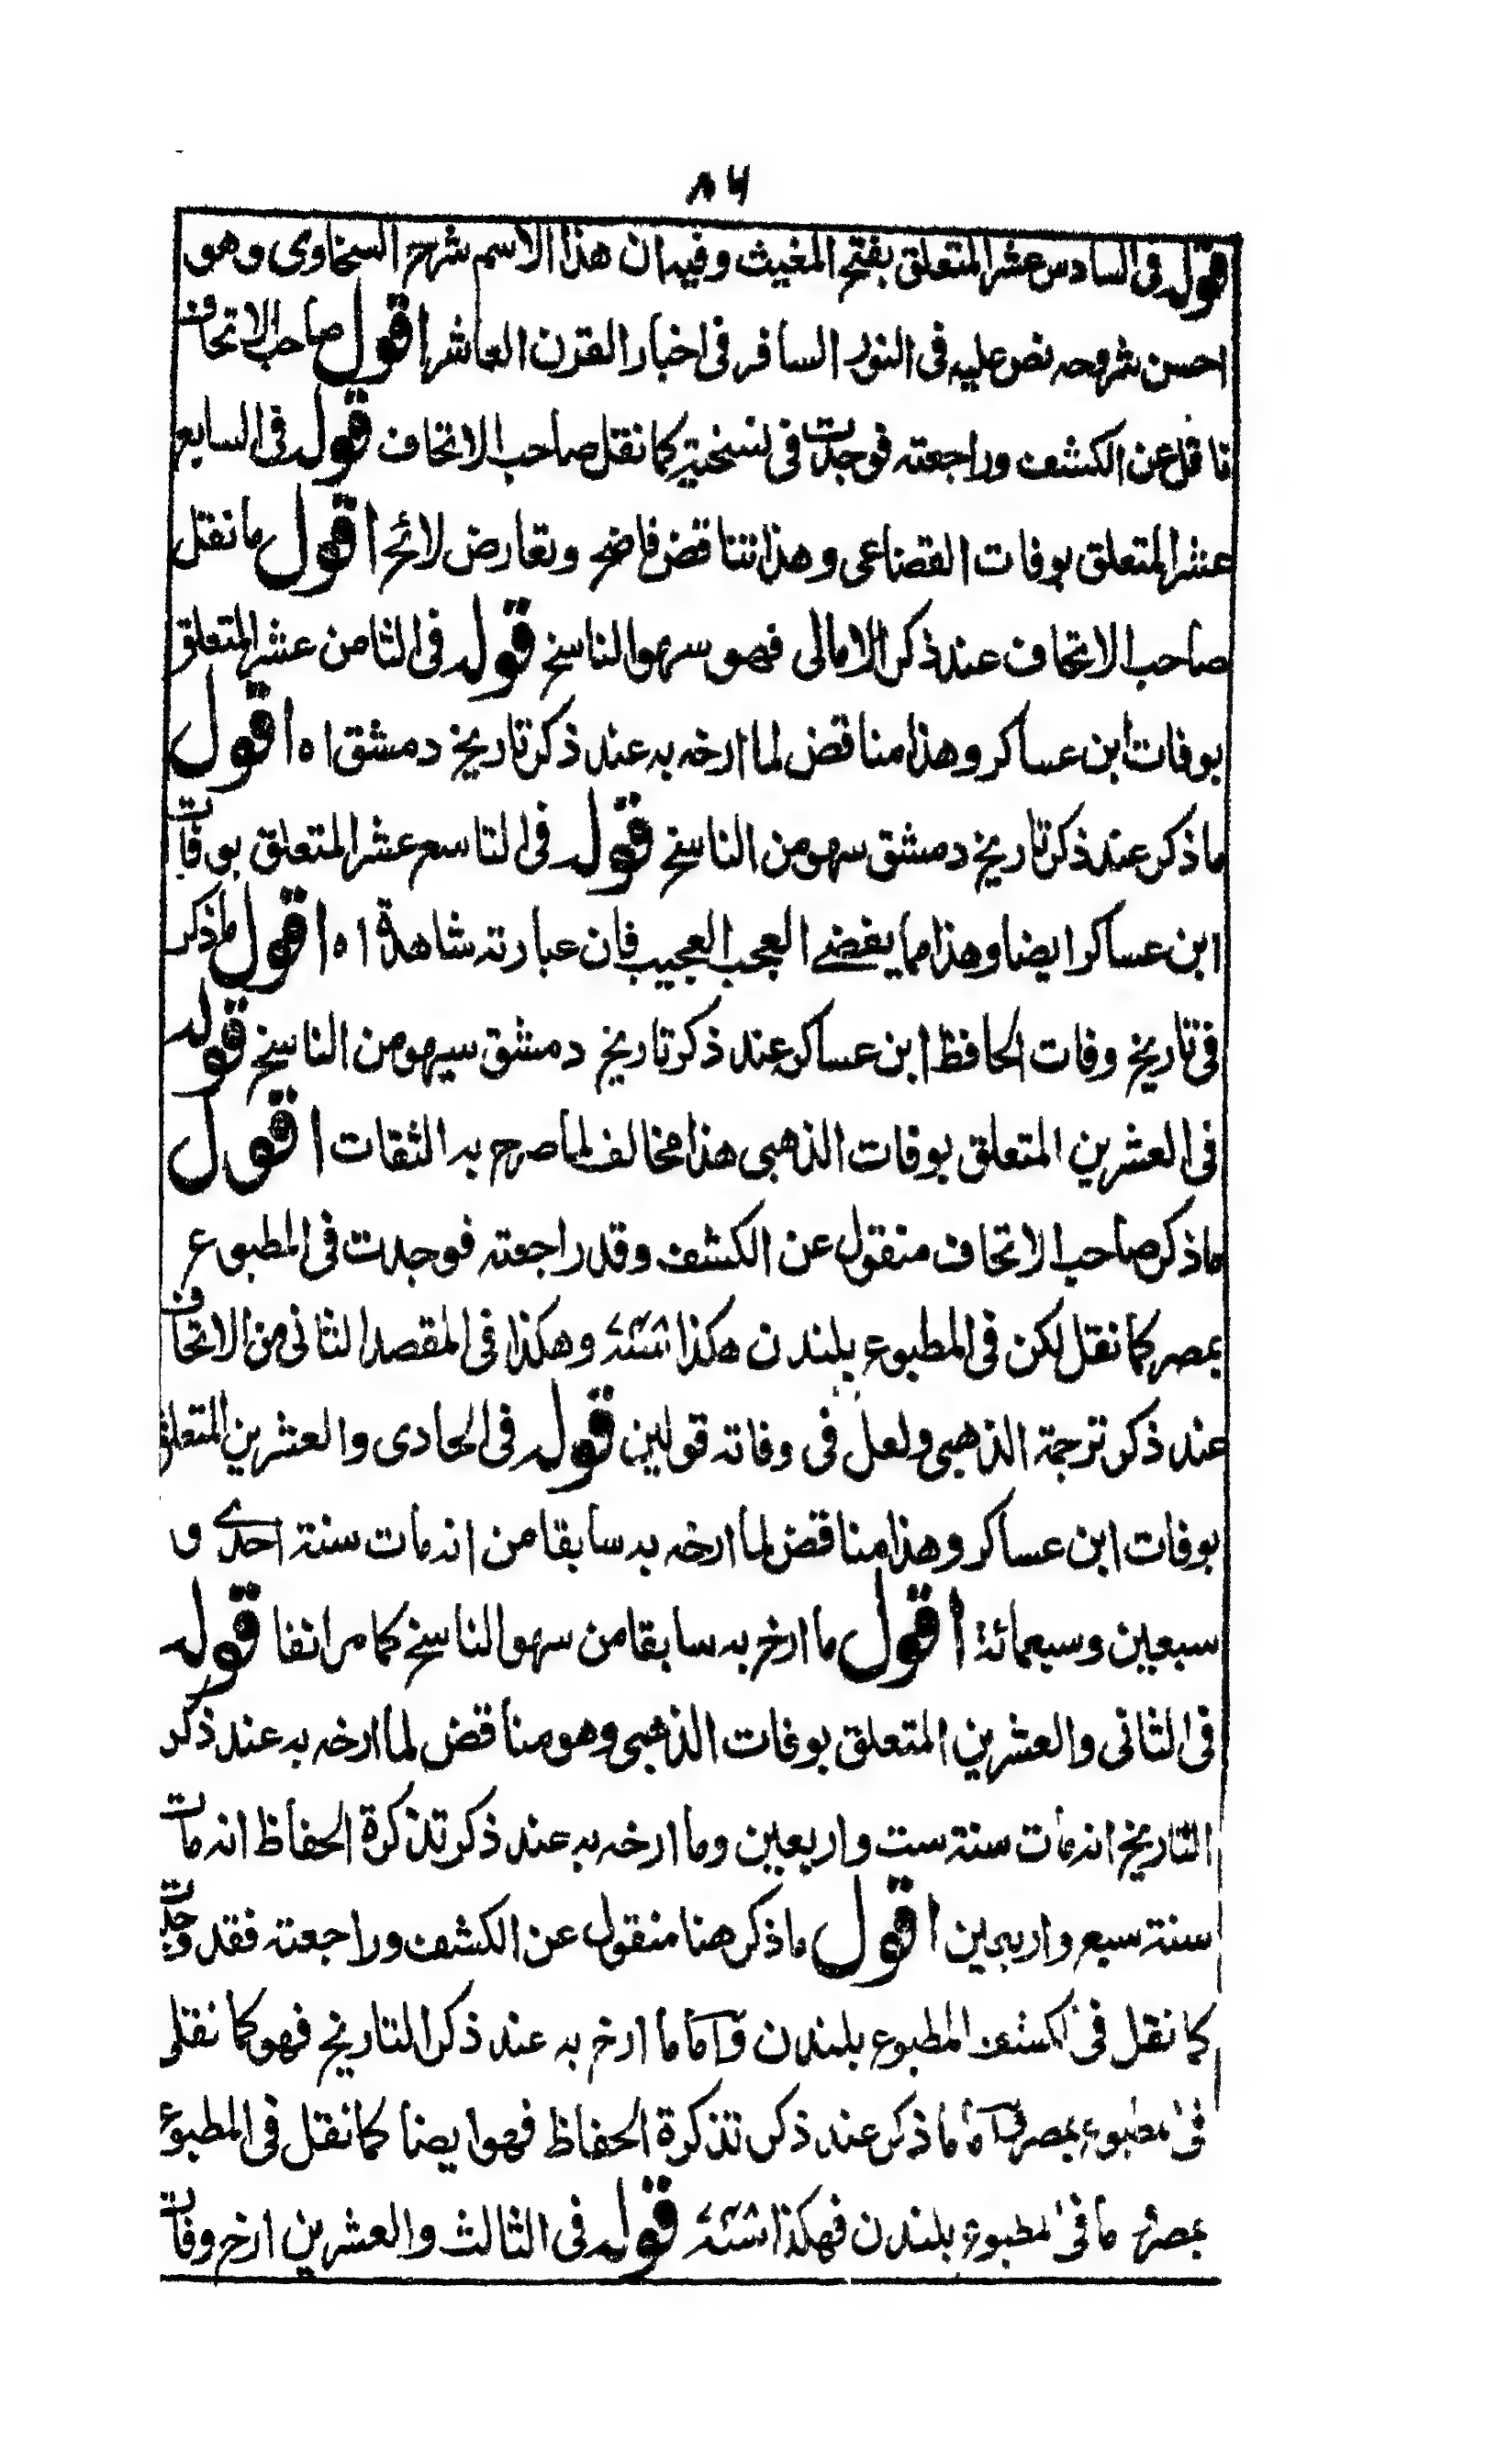 ٨٦
قوله فى السادس عشر المتعلق بفتح المغيث وفيه ان هذا الاسم شرح السخاوى وهو
احسن شروحه نص عليه فى النور السافر فى اخبار القرن العاشر اقول صاحب الاتحاف
ناقل عن الكشف وراجعته فوجدت فى نسختيه كما نقل صاحب الاتحاف قوله فى السابع
عشر المتعلق بوفات القضاعى وهذا تناقض فاضح وتعارض لائح اقول ما نقل
صاحب الاتحاف عند ذكر الامالى فهو سهو الناسخ قوله فى الثامن عشر المتعلق
بوفات ابن عساكر وهذا مناقض لما ارخه به عند ذكر تاريخ دمشق اه اقول
ما ذكر عند ذكر تاريخ دمشق سهو من الناسخ قوله فى التاسع عشر المتعلق بوفات
ابن عساكر ايضا وهذا مما يفضى العجب العجيب فان عبارته شاهدة اه اقول ما ذكر
فى تاريخ وفات الحافظ ابن عساكر عند ذكر تاريخ دمشق سهو من الناسخ قوله
فى العشرين المتعلق بوفات الذهبى هذا مخالف لما صرح به الثقات اقول
ما ذكر صاحب الاتحاف منقول عن الكشف وقد راجعته فوجدت فى المطبوع
بمصر كما نقل لكن فى المطبوع بلندن هكذا وهكذا فى المقصد الثانى من الاتحاف
عند ذكر ترجمة الذهبى ولعل فى وفاته قولين قوله فى الحادى والعشرين المتعلق
بوفات ابن عساكر وهذا مناقض لما ارخه به سابقا من انه مات سنة احدى و
سبعين وسبعمائة اقول ما ارخ به سابقا من سهو الناسخ كما مر انفا قوله
فى الثانى والعشرين المتعلق بوفات الذهبى وهو مناقض لما ارخه به عند ذكر
التاريخ انه مات سنة ست واربعين وما ارخه به عند ذكر تذكرة الحفاظ انه مات
سنة سبع واربعين اقول ما ذكر هنا منقول عن الكشف وراجعته فقد وجدت
كما نقل فى الكشف المطبوع بلندن واما ما ارخ به عند ذكر التاريخ فهو كما نقل
فى المطبوع بمصر واما ما ذكر عند ذكر تذكرة الحفاظ فهو ايضا كما نقل فى المطبوع
بمصر ما فى المطبوع بلندن فهكذا قوله فى الثالث والعشرين ارخ وفات